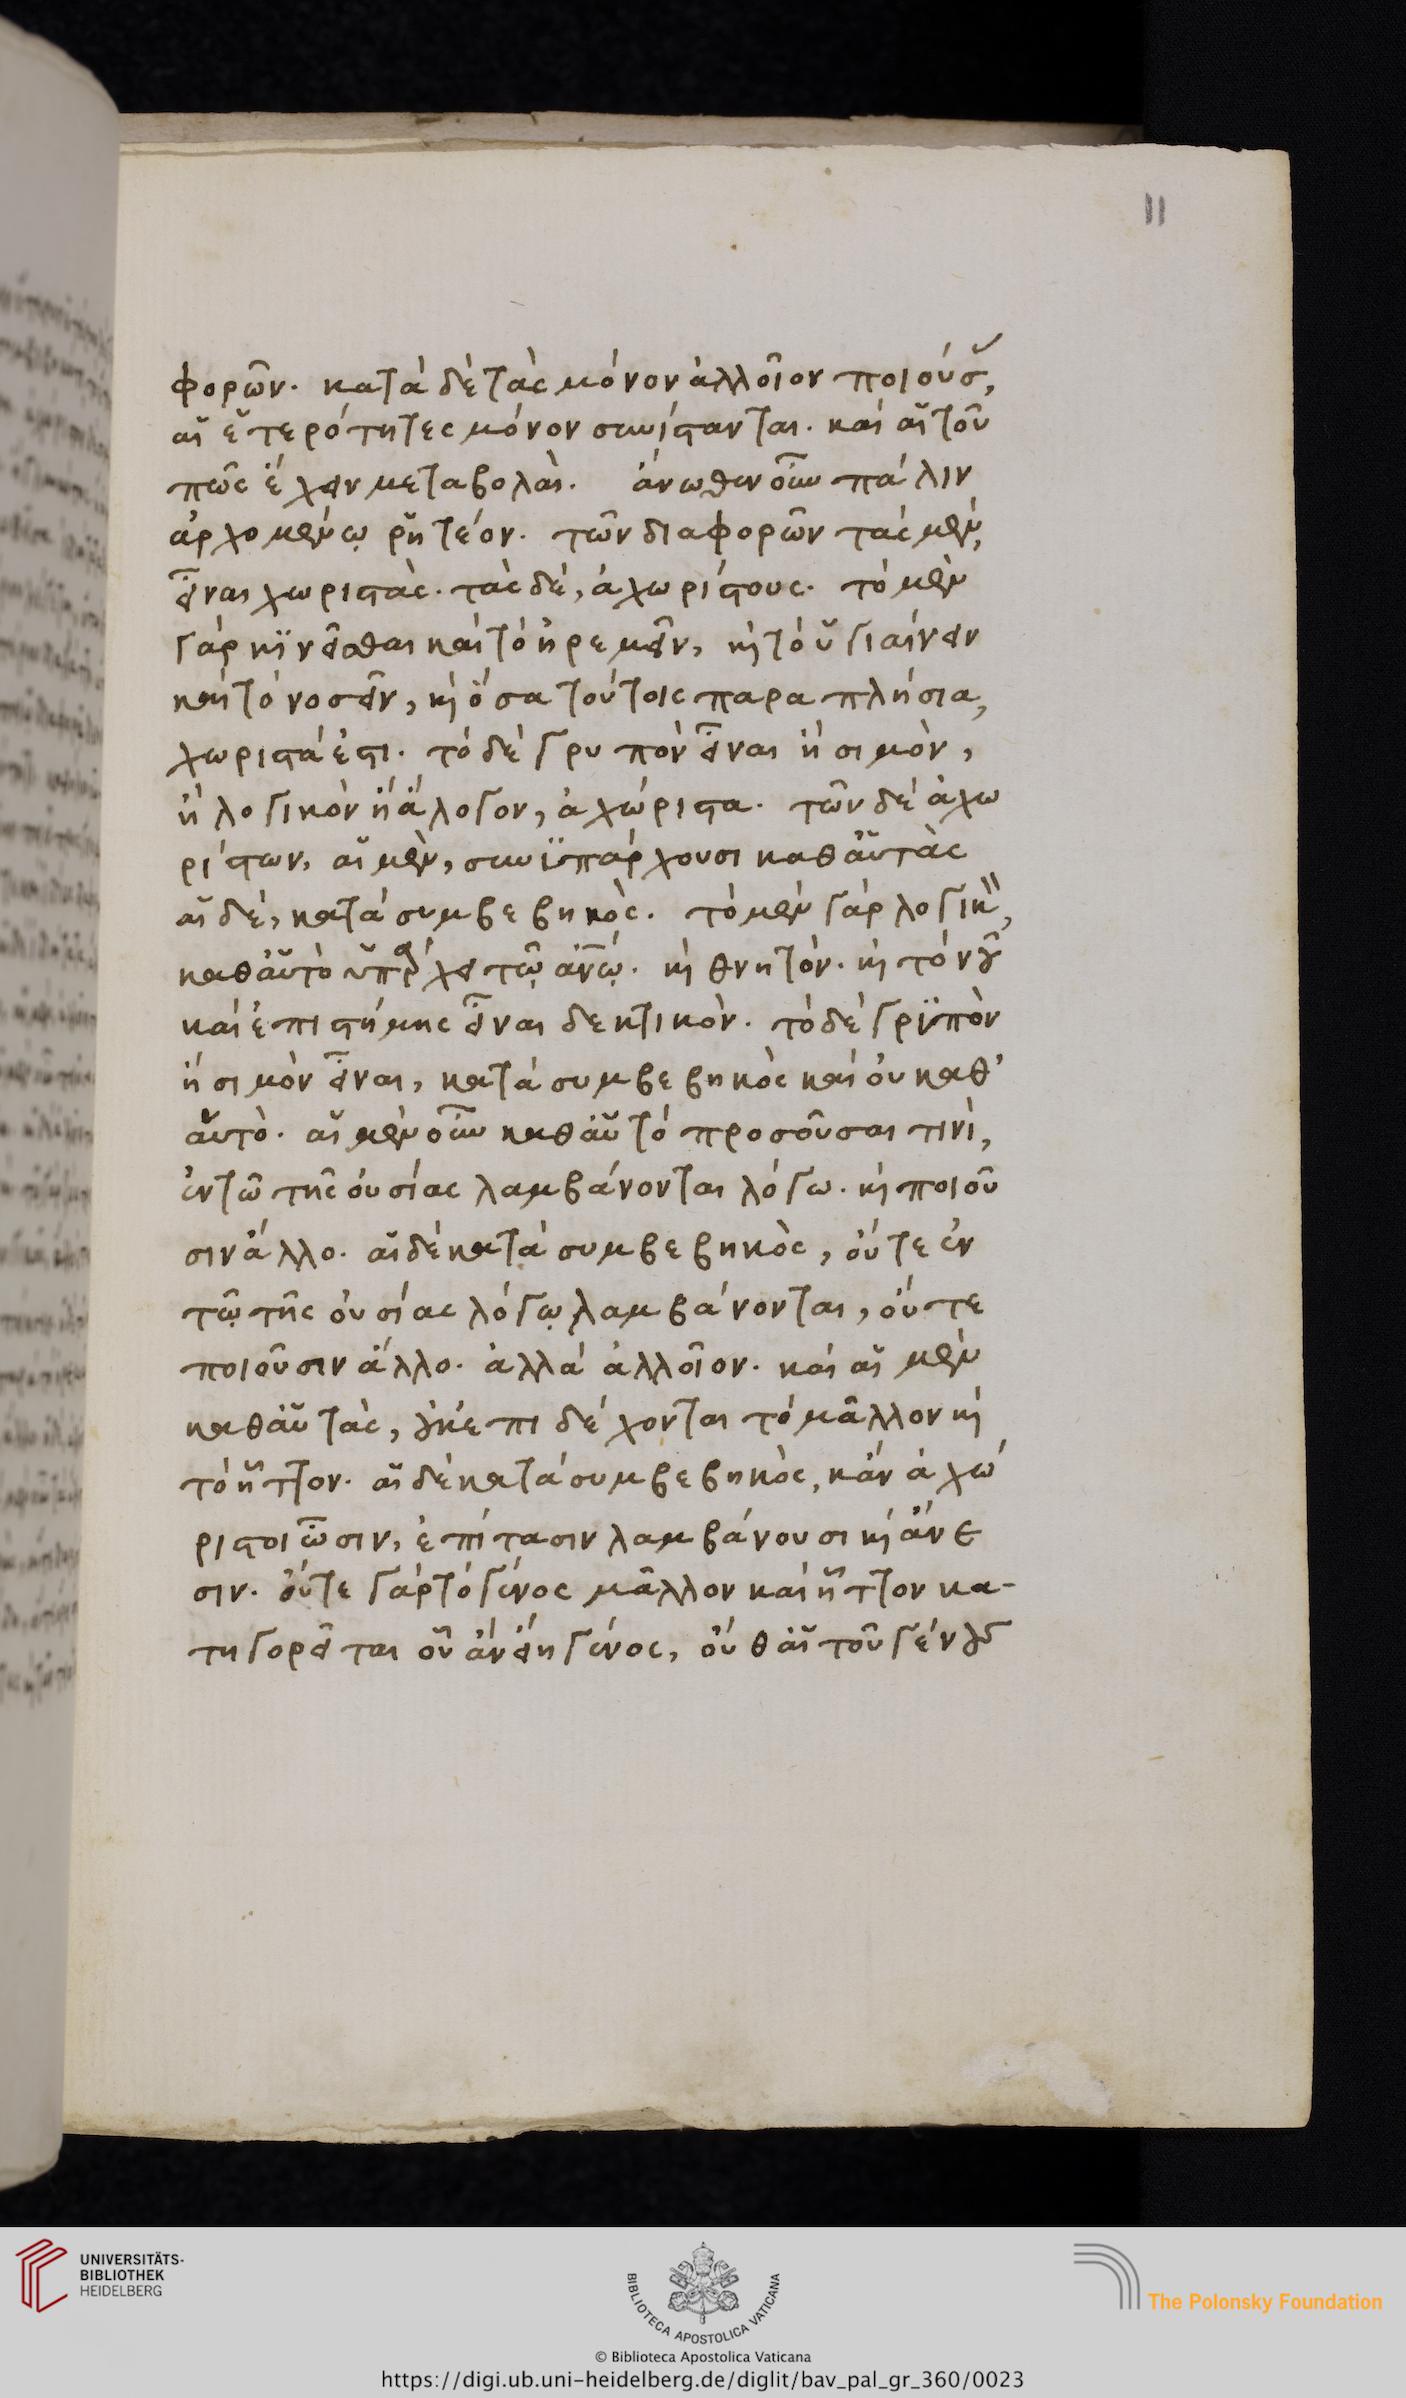 11
φορῶν. κατὰ δὲ τὰς μόνον ἀλλοῖον ποιούσ,
αἱ ἑτερότητες μόνον συνίστανται. καὶ αἱ τοῦ
πῶς ἔχειν μεταβολαὶ. ἄνωθεν οὖν πάλιν
ἀρχομένῳ ῥητέον. τῶν διαφορῶν τὰς μὲν,
εἶναι χωριστὰς. τὰς δὲ, ἀχωρίστους. τὸ μὲν
γὰρ κινεῖσθαι καὶ τὸ ἠρεμεῖν, κὶ τὸ ὑγιαίνειν
καὶ τὸ νοσεῖν, κὶ ὅσα τούτοις παραπλήσια,
χωριστά ἐστι. τὸ δὲ γρυπὸν εἶναι ἢ σιμὸν,
ἢ λογικὸν ἢ ἄλογον, ἀχώριστα. τῶν δὲ ἀχω
ρίστων, αἱ μὲν, συνϋπάρχουσι καθ αὑτὰς
αἱ δὲ, κατὰ συμβεβηκὸς. τὸ μὲν γὰρ λογικ,
καθ αὑτὸ ὑπάρχει τῷ ἀνῳ. κὶ θνητὸν. κὶ τὸ νοῦ
καὶ ἐπιστήμης εἶναι δεκτικὸν. τὸ δὲ γρϋπὸν
ἢ σιμὸν εἶναι, κατὰ συμβεβηκὸς καὶ οὐ καθ’
αὑτὸ. αἱ μὲν οὖν καθ αὑτὸ προσοῦσαι τινὶ,
ἐν τῶ τῆς οὐσίας λαμβάνονται λόγω. κὶ ποιοῦ
σιν ἄλλο. αἱ δὲ κατὰ συμβεβηκὸς, οὔτε ἐν
τῷ τῆς οὐσίας λόγῳ λαμβάνονται, οὔτε
ποιοῦσιν ἄλλο. ἀλλὰ ἀλλοῖον. καὶ αἱ μὲν
καθ αὑτὰς, οὐκ ἐπιδέχονται τὸ μᾶλλον κὶ
τὸ ἧττον. αἱ δὲ κατὰ συμβεβηκὸς, κἂν ἀχώ
ριστοι ὦσιν, ἐπίτασιν λαμβάνουσι κὶ ἄνε
σιν. οὔτε γὰρ τὸ γένος μᾶλλον καὶ ἧττον κα-
τηγορεῖται οὗ ἂν εἴη γένος, οὔθ αἱ τοῦ γένους
UNIVERSITÄTS-
BIBLIOTHEK
HEIDELBERG
BIBLIOTECA APOSTOLICA VATICANA
The Polonsky Foundation
© Biblioteca Apostolica Vaticana
https://digi.ub.uni-heidelberg.de/diglit/bav_pal_gr_360/0023